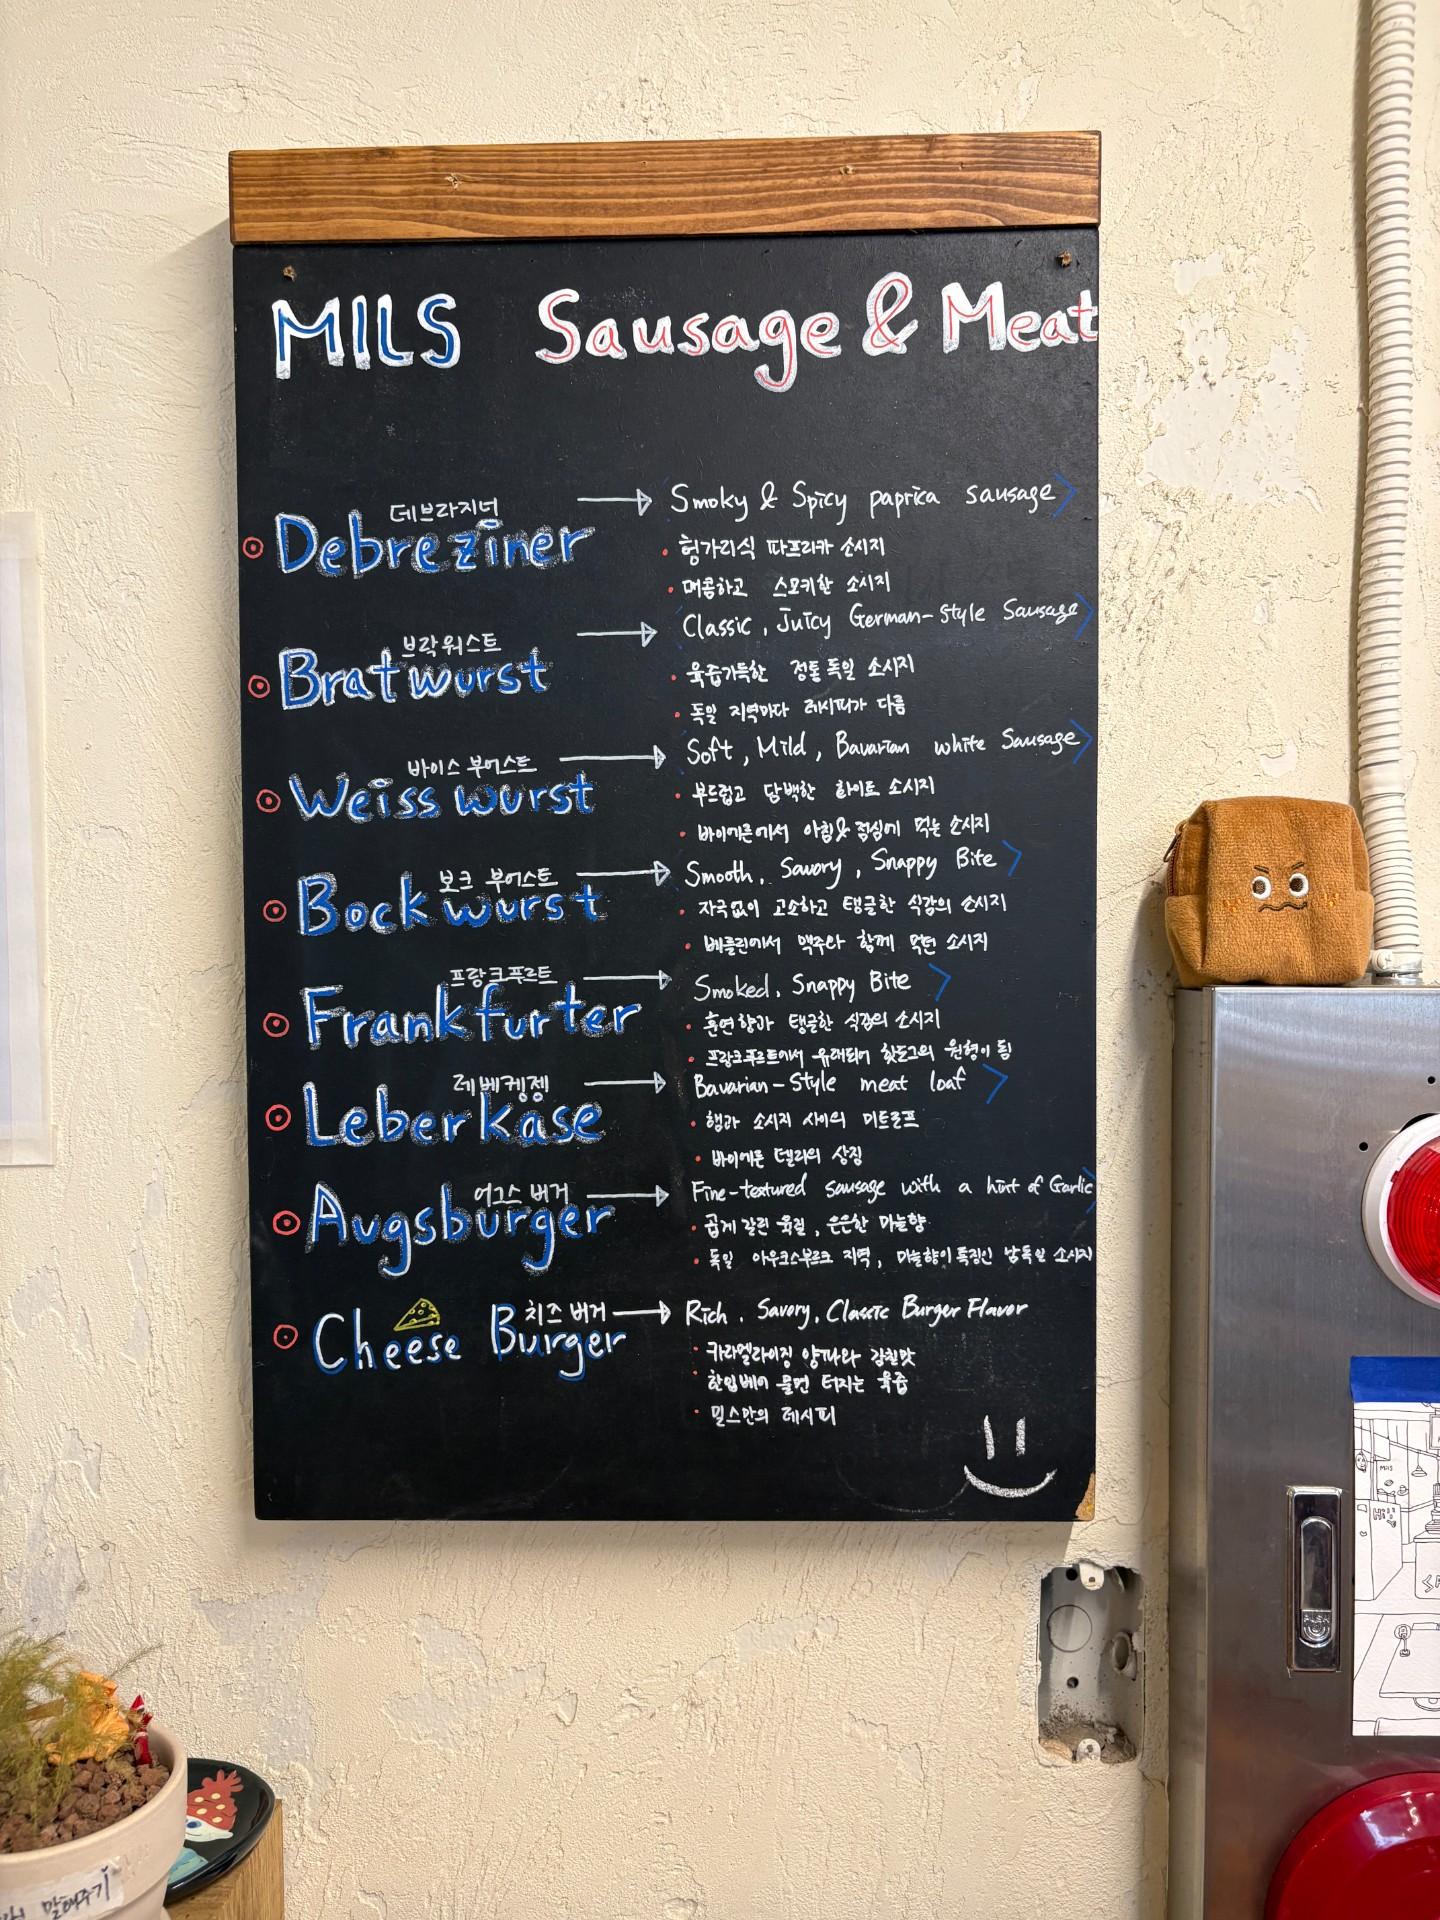 MILS Sausage & Meat
데브라지너
Debreziner
Smoky & Spicy paprica sausage
헝가리식 파프리카 소시지
매콤하고 스모키한 소시지
브랏워스트
Bratwurst
Classic, Juicy German-Style Sausage
육즙가득한 정통 독일 소시지
독일 지역마다 레시피가 다름
바이스 부어스트
Weiss wurst
Soft, Mild, Bavarian white Sausage
부드럽고 담백한 화이트 소시지
바이에른에서 아침& 점심에 먹는 소시지
보크 부어스트
Bockwurst
Smooth, Savory, Snappy Bite
자극없이 고소하고 탱글한 식감의 소시지
베를린에서 맥주와 함께 먹던 소시지
프랑크푸르트
Frankfurter
Smoked, Snappy Bite
훈연향과 탱글한 식감의 소시지
프랑크푸르트에서 유래되어 핫도그의 원형이 됨
레베케젱
Leberkase
Bavarian-Style meat loaf
햄과 소시지 사이의 미트로프
바이에른 델리의 상징
어그스 버거
Augsburger
Fine-textured sausage with a hint of Garlic
곱게 갈린 육질, 은은한 마늘향
독일 아우크스부르크 지역, 마늘향이 특징인 남독일 소시지
치즈 버거
Cheese Burger
Rich, Savory, Classic Burger Flavor
카라멜라이징 양파와 감칠맛
한입베어 물면 터지는 육즙
밀스만의 레시피
MILS
Hi
PUSH
말해주기